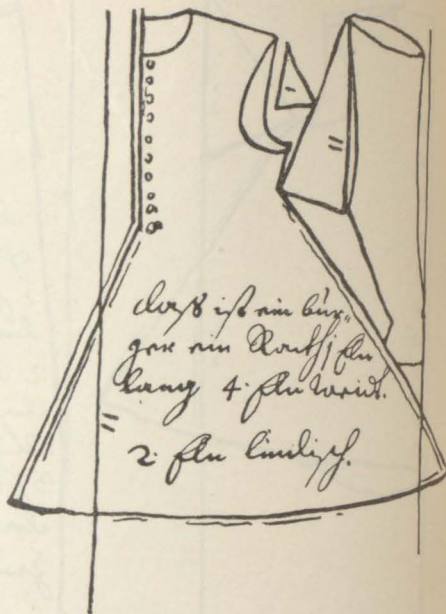 dass ist ein bür„
ger ein Rockh j Eln
lang 4· Eln weidt.
2 Eln lindisch.